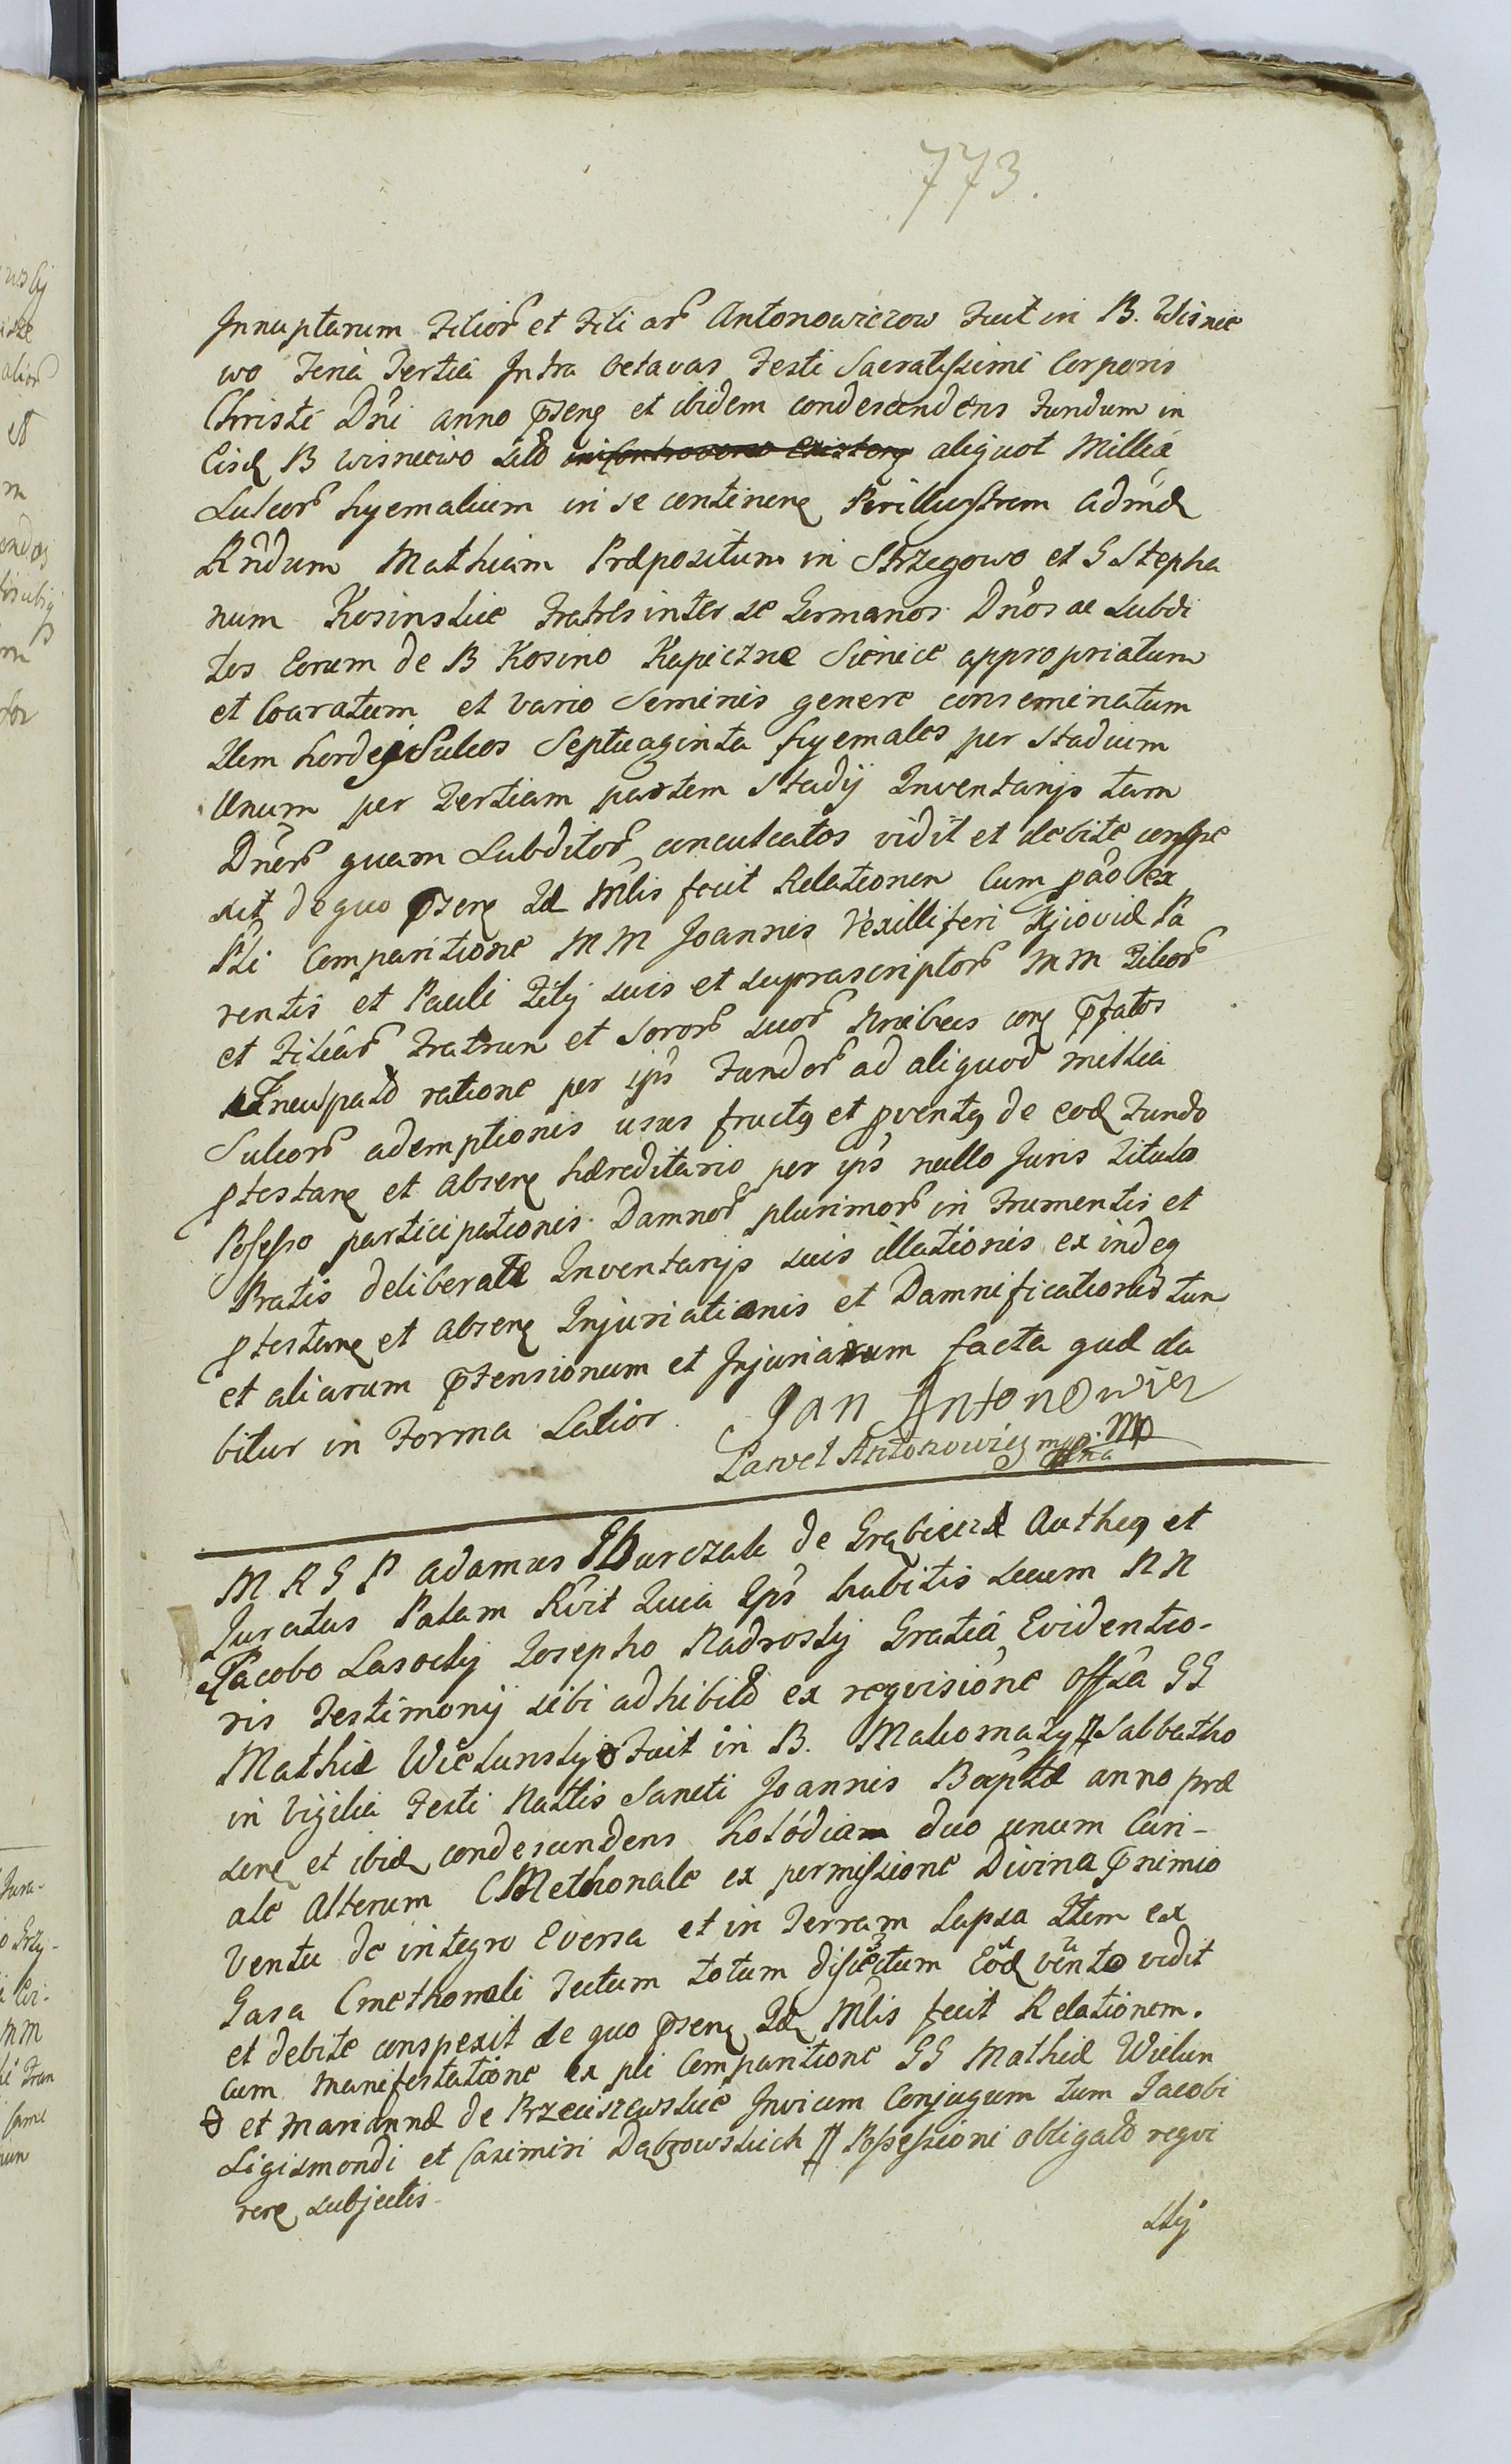 773.
Innuptarum Filior et Filiar Antonowiczow Fuit in B. Wisnie
wo Feria Tertia Intra Octavas Festi Sacratissimi Corporis
Christi Dni anno pseng et ibidem condescendens Fundum in
Eisd B Wisniewo Sito aliquot Millia
Sulcor hyemalium in se contineng Perillustrem Admd
Rndum Mathiam Præpositum in Strzegowo et G Stepha
num Kosinskie Fratres inter se Germanos Dnos ac Subdi
tos Eorum de B Kosino Kapiczne Sienice appropriatum
et Coaratum et Vario Seminis genere conseminatum
Item hordei Sulcos Septuaginta hyemales per Stadium
Unum per Tertiam partem Stadij Inventarijs tam
Dnor quam Subditor conculcatos vidit et debite conspe
xit de quo pseng Id Mlis fecit Relationem Cum pao ex
Pli Comparitione MM Joannis Vexilliferi Kijoviæ Pa
rentis et Pauli Filij suis et suprascriptor MM Filior
et Filiar Fratrum et Soror suor Nnibus cong pfatos
ratione per ips Fundor ad aliquod millia
Sulcor ademptionis usus fructg et pventg de eod Fundo
ptestang et abseng hæreditario per ips nullo Juris Titulo
Possesso participationis Damnor plurimor in Frumentis et
Pratis deliberate Inventarijs suis illationis ex indeg
ptestang et abseng Injuriationis et Damnificationis tum
et aliarum ptensionum et Injuriarum facta quæ da
bitur in Forma Latior. Jan Antonowicz
Pawel Antonowicz mpp. Mp
M R G P Adamus Burczak de Grabiecz Autheg et
Juratus Palam Rvit Quia Ips habitis secum NN
Jacobo Lasocky Josepho Nadrosky Gratia Evidentio-
ris Testimonij sibi adhibito ex requisione offsa GG
Mathiæ Wielunsky Fuit in B. Malomazy # Sabbatho
in Vigilia Festi Nattis Sancti Joannis Baptæ anno præ
seng et ibid condescendens duo unum Curi-
ale Alterum CMethonale ex permissione Divina pnimio
Ventu de integro Eversa et in Terram Lapsa Item ex
Casa Cmethonali Tectum totum disiectum Eod vento vidit
et debite conspexit de quo pseng Id Mlis fecit Relationem.
cum manifestatione ex pli Comparitione GG Mathiæ Wielun
et Mariannæ de Przeciszewskie Invicem Conjugum tum Jacobi
Sigismondi et Casimiri Dąbrowskich # Possessioni obligato requi
reng subjectis.
sky